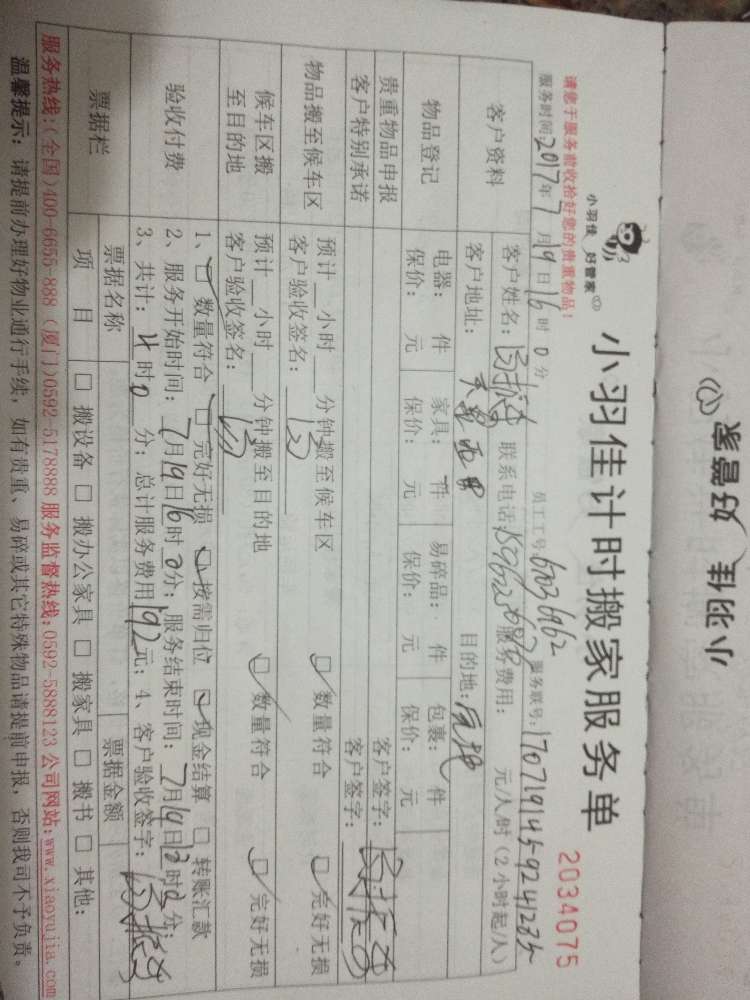 小羽佳 好管家
小羽佳 好管家
小羽佳计时搬家服务单
2034075
请您于服务前收拾好您的贵重物品!
服务时间:2017年7月19日16时0分 员工工号: 服务联号:
客户资料
客户姓名: 联系电话: 服务费用: 元/人时(2小时起/人)
客户地址: 目的地:
物品登记
电器: 件 家具: 件 易碎品: 件 包裹: 件
保价: 元 保价: 元 保价: 元 保价: 元
贵重物品申报 客户签字:
客户特别承诺 客户签字:
物品搬至候车区
预计 小时 分钟搬至候车区 数量符合 完好无损
客户验收签名:
候车区搬
至目的地
预计 小时 分钟搬至目的地 数量符合 完好无损
客户验收签名:
验收付费
1、 数量符合 完好无损 按需归位 现金结算 转账汇款
2、服务开始时间:7月19日16时0分;服务结束时间:7月19日 时 分;
3、共计: 时0分;总计服务费用192元;4、客户验收签字:
票据栏
票据名称 票据金额
项 目 搬设备 搬办公家具 搬家具 搬书 其他:
服务热线:(全国)400-6655-888 (厦门)0592-5178888 服务监督热线:0592-5888123 公司网站:www.xiaoyujia.com
温馨提示:请提前办理好物业通行手续,如有贵重、易碎或其它特殊物品请提前申报,否则我司不予负责。